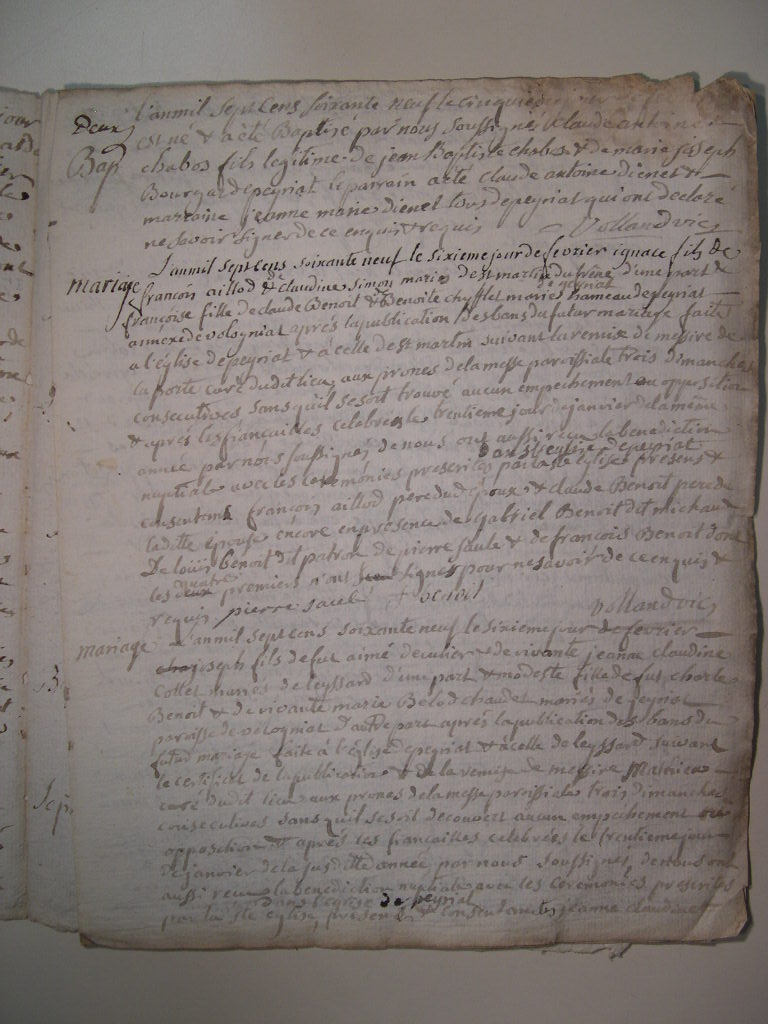 Deux
Bap
L'an mil sept cens soixante neuf le cinquieme
est né & a été Baptisé par nous soussigné Claude antoine
chabos fils legitime de jean Baptiste chabos & de marie joseph
Bourgar de peyriat le parrain a eté claude antoine dienet &
marraine jeanne marie dienet tous de peyriat qui ont declaré
ne savoir signer de ce enquis & requis Volland vic
mariage
L'an mil sept cens soixante neuf le sixieme jour de fevrier ignace fils de
françois aillod & de claudine simon mariés de st martin du frene d'une part &
de peyriat
françoise fille de claude Benoit & de Benoite chyfflet mariés hameau de peyriat
annéxe de vologniat après la publication des bans du futur mariage faite
a l'église de peyriat & a celle de st martin suivant la remise de messire de
la porte curé dudit lieu aux prones de la messe paroissiale trois dimanches
consecutives sans qu'il se soit trouvé aucun empechement ou opposition
& après les fiançailles celebrées le trentieme jour de janvier de la même
année par nous soussigné de nous ont aussi reçu la benediction
dans l'eglise de peyriat
nuptiale avec les ceremonies prescrites par la ste église présens &
consentans françois aillod pere dudt époux & claude Benoit pere de
laditte épouse encore en presence de Gabriel Benoit dit michaud
De louis Benoit dit patron de pierre saule & de françois Benoit dont
quatre
les deux premiers n'ont signés pour ne savoir de ce enquis &
requis pierre saule f benoit Volland vic
mariage
L'an mil sept cens soixante neuf le sixieme jour de fevrier
joseph fils de fut aimé decutier & de vivante jeanne claudine
Collet mariés de leyssard d'une part & modeste fille de fut charle
Benoit & de vivante marie Belod chaudet mariés de peyriat
paroisse de vologniat d'autre part après la publication des bans du
futur mariage faite à l'église de peyriat & a celle de leyssard suivant
le certificat de la publication & de la remise de messire Mathieu
curé dudit lieu aux prones de la messe paroissiale trois dimanches
consecutives sans qu'il se soit decouvert aucun empechement ou
opposition & après les fiançailles celebrées le trentieme jour
de janvier de la susditte année par nous soussigné de nous ont
aussi reçu la benediction nuptiale avec les ceremonies prescrites
dans l'eglise de peyriat
par la ste église, présens & consentantes jeanne claudine